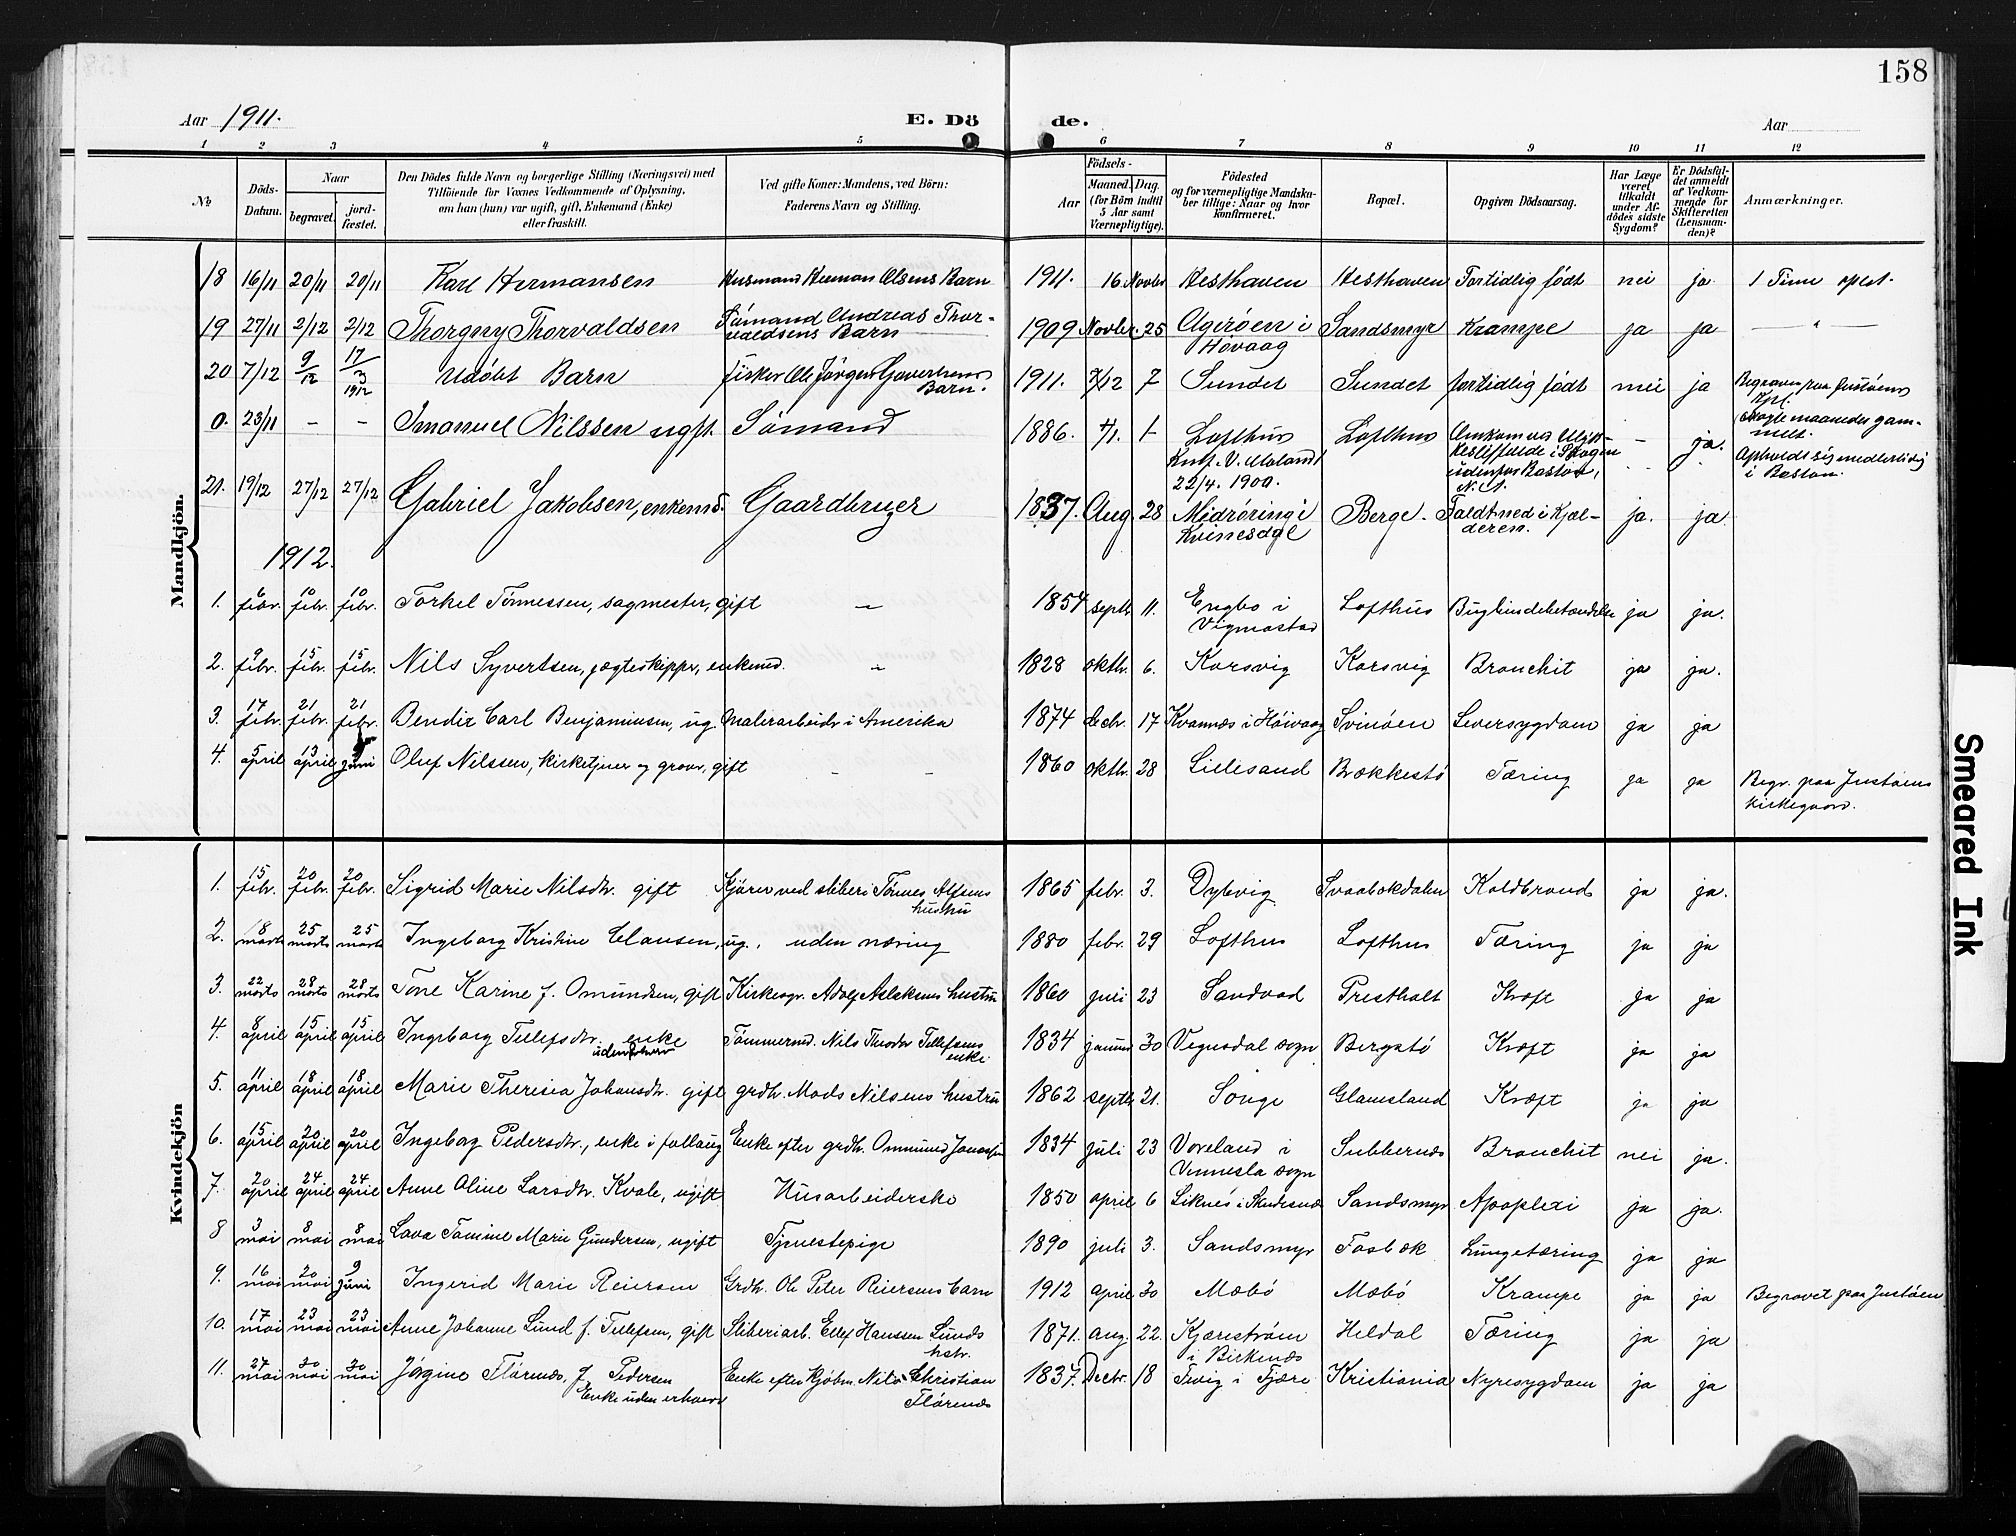 158
Aar 1911.
E. Dö de.
Aar
1 2 3 4 5 6 7 8 9 10 11 12
No
Döds-Datum.
Naar
begravet.
jord-fæstet.
Den Dödes fulde Navn og borgerlige Stilling (Næringsvei) med
Tilföiende for Voxnes Vedkommende af Oplysning,
om han (hun) var ugift, gift, Enkemand (Enke)
eller fraskilt.
Ved gifte Koner: Mandens, ved Börn:
Faderens Navn og Stilling.
Födsels-
Aar
Maaned. Dag.
(for Börn indtil
5 Aar samt
Værnepligtige).
Födested
og for værnepligtige Mandska-
ber tillige: Naar og hvor
konfirmeret.
Bopæl.
Opgiven Dödsaarsag.
Har Læge
været
tilkaldt
under Af-
dödes sidste
Sygdom?
Er Dödsfal-
det anmeldt
af Vedkom-
mende for
Skifteretten
(Lensman-
den)?
Anmærkninger.
Mandkjön.
18 16/11 20/11 20/11 Karl Hermansen Husmand Herman Olsens Barn 1911. 16 Novbr Hesthaven Hesthaven Fortidlig født nei ja. 1 Time
19 27/11 2/12 2/12 Thorgny Thorvaldsen Sömand Andreas Thor-
valdsens Barn 1909 Novbr. 25 Agerøen i
Høvaag Sandsmyr Krampe ja ja — " —
20 7/12 9/12 17/3 1912 Udöbt Barn fisker Ole Jörgen
Barn. 1911. 7/12 7 Sundet Sundet fortidlig født nei ja Begraven paa Justöens
Kpl.
0. 23/11 – – Imanuel Nilssen ugft. Sömand 1886. 4/1. 1 Lofthus
Knf. V. Moland
22/4. 1900. Lofthus Omkom ved
i Skogen
udenfor Boston,
N. A. – ja. maaneder gam-
melt.
Opholdt sig midlertidig
i Boston.
21. 19/12 27/12 27/12 Gabriel Jakobsen, enkemd. Gaardbruger 1837. Aug. 28 Midröring i
Kvinesdal Berge. Faldt ned i Kjæl-
deren. ja. ja.
1912.
1. 6 febr. 10 febr. 10 febr. Torkel Tönnessen, sagmester, gift – 1854 septb. 11. Engbo i
Vigmostad Lofthus Bughindebetændelse ja ja.
2. 9 febr. 15 febr. 15 febr. Nils Syvertsen, jægteskipper, enkemd. – 1828 oktb. 6. Korsvig Korsvig Bronchit ja ja.
3. 17 febr. 21 febr. 21 febr. Bendix Carl Benjaminsen, ug. Malerarbeider i Amerika 1874 17 Kvannes i Höivaag Svinöen Leversygdom ja ja
4. 5 april 13 april juni Oluf Nilssen, kirketjner og graver, gift – – 1860 oktb. 28 Lillesand Brækkestö Tæring ja ja Begr. paa Justöens
kirkegaard.
Kvindekjön
1. 15 febr. 20 febr. 20 febr. Sigrid Marie Nilsdtr. gift Kjörer ved sliberi Tönnes Alfsens
hustru 1865 febr. 3. Dybvig Svaabækdalen Koldbrand ja ja.
2. 18 marts 25 marts 25 marts Ingeborg Kristine Clausen, ug., uden næring 1880 febr. 29 Lofthus Lofthus Tæring ja ja
3. 22 marts 28 marts 28 marts Tone Karine f. Omundsen, gift Kirkesgr. Adolf Aslaksens hustru 1860 juli 23 Sandvad Prestholt Kræft ja ja
4. 8 april 15 april 15 april Ingeborg Tellefsdtr. enke
uden erhverv Tömmermd. Nils Theodor Tellefsens
enke 1834 januar 30 Vegusdal sogn Bergstö Kræft ja ja
5. 11 april 18 april 18 april Marie Theresia Johansdtr. gift grdb. Mads Nilsens hustru 1862 septb. 21. Songe Glamsland Kræft ja ja
6. 15 april 20 april 20 april Ingeborg Pedersdtr., enke i follaug Enke efter grdb. Ommund 1834 juli 23 Voreland i
Vennesla sogn Subbernes Bronchit nei ja.
7. 20 april 24 april 24 april Anne Oline Larsdtr. Kvale, ugift Husarbeiderske 1850 april 6 Liknes i Skudesnæs Sandsmyr Apoplexi ja ja.
8 3 mai 8 mai 8 mai Lava Tomine Marie Gundersen, ugift Tjenestepige 1890 juli 3. Sandsmyr Fosbæk Lungetæring ja ja
9. 16 mai 20 mai 9 juni Ingerid Marie Reiersen Grdb. Ole Peter Reiersens barn 1912 april 30 Mæbö Mæbö Krampe ja ja Begravet paa Justöen
10. 17 mai 23 mai 23 mai Anne Johanne Lund f. Tellefsen, gift Sliberiarb. Ellef Hanssen Lunds
hstr. 1871. aug. 22. Kjærestrøm
i Birkenes Heldal Tæring ja ja
11. 24 mai 30 mai 30 mai Jörgine Flörenes, f. Pedersen
Enke uden erhverv Enke efter Kjöbm. Nils Christian
Flörenes 1837. Decbr. 18 Fevig i Fjære Kristiania Nyresygdom ja ja
Smeared Ink